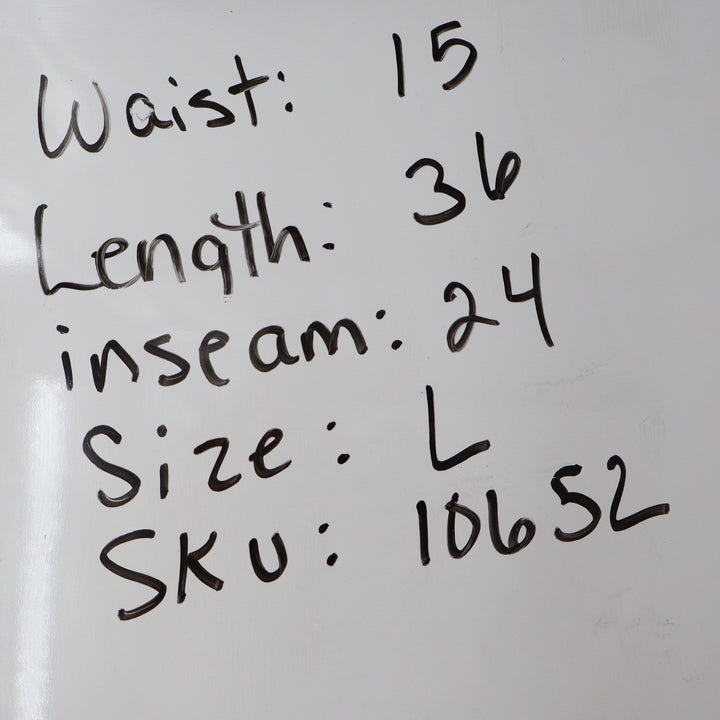 Waist: 15
Length: 36
inseam: 24
Size: L
SKU: 10652